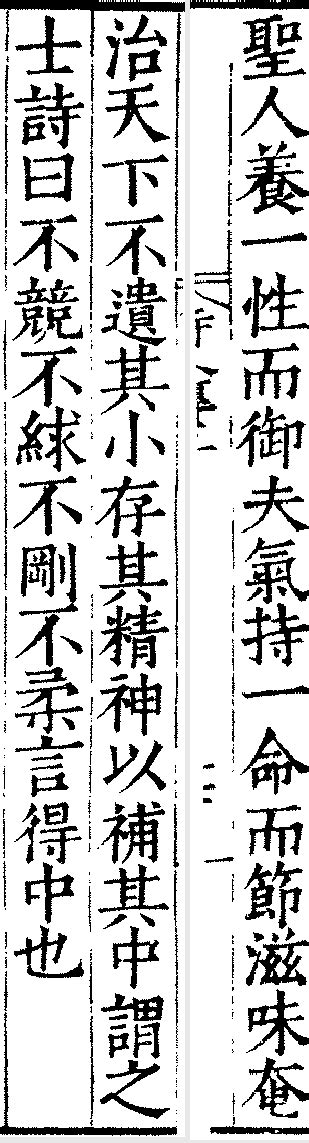 聖人養一性而御夫氣持一命而節滋味奄
治天下不遺其小存其精神以補其中謂之
士詩曰不競不絿不剛不柔言得中也